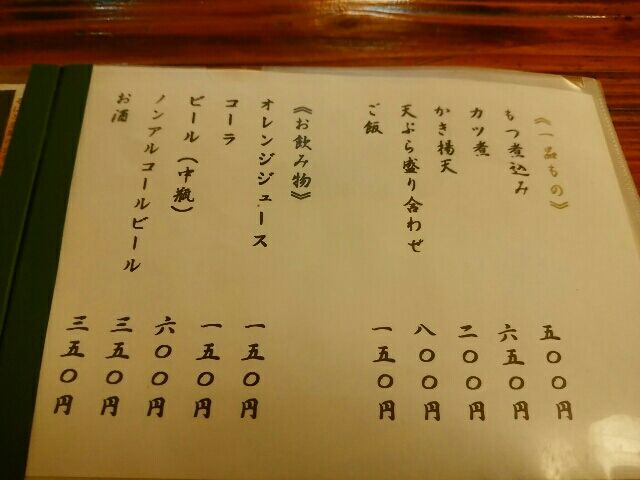 《一品もの》
もつ煮込み 五〇〇円
カツ煮 六五〇円
かき揚天 二〇〇円
天ぷら盛り合わせ 八〇〇円
ご飯 一五〇円
《お飲み物》
オレンジジュース 一五〇円
コーラ 一五〇円
ビール(中瓶) 六〇〇円
ノンアルコールビール 三五〇円
お酒 三五〇円